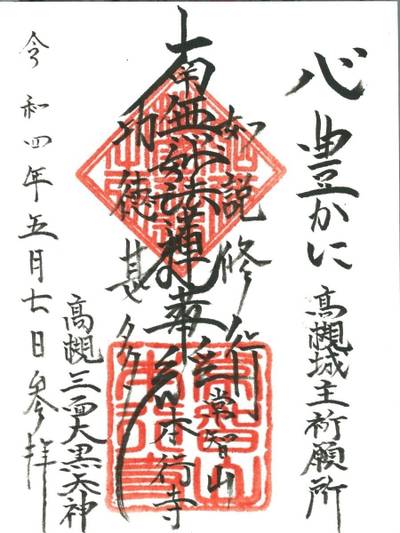 心豊かに
髙槻城主祈願所
如説修行
南無妙法蓮華経
功徳甚多
常智山
本行寺
髙槻三面大黒天神
令和四年五月七日参拝